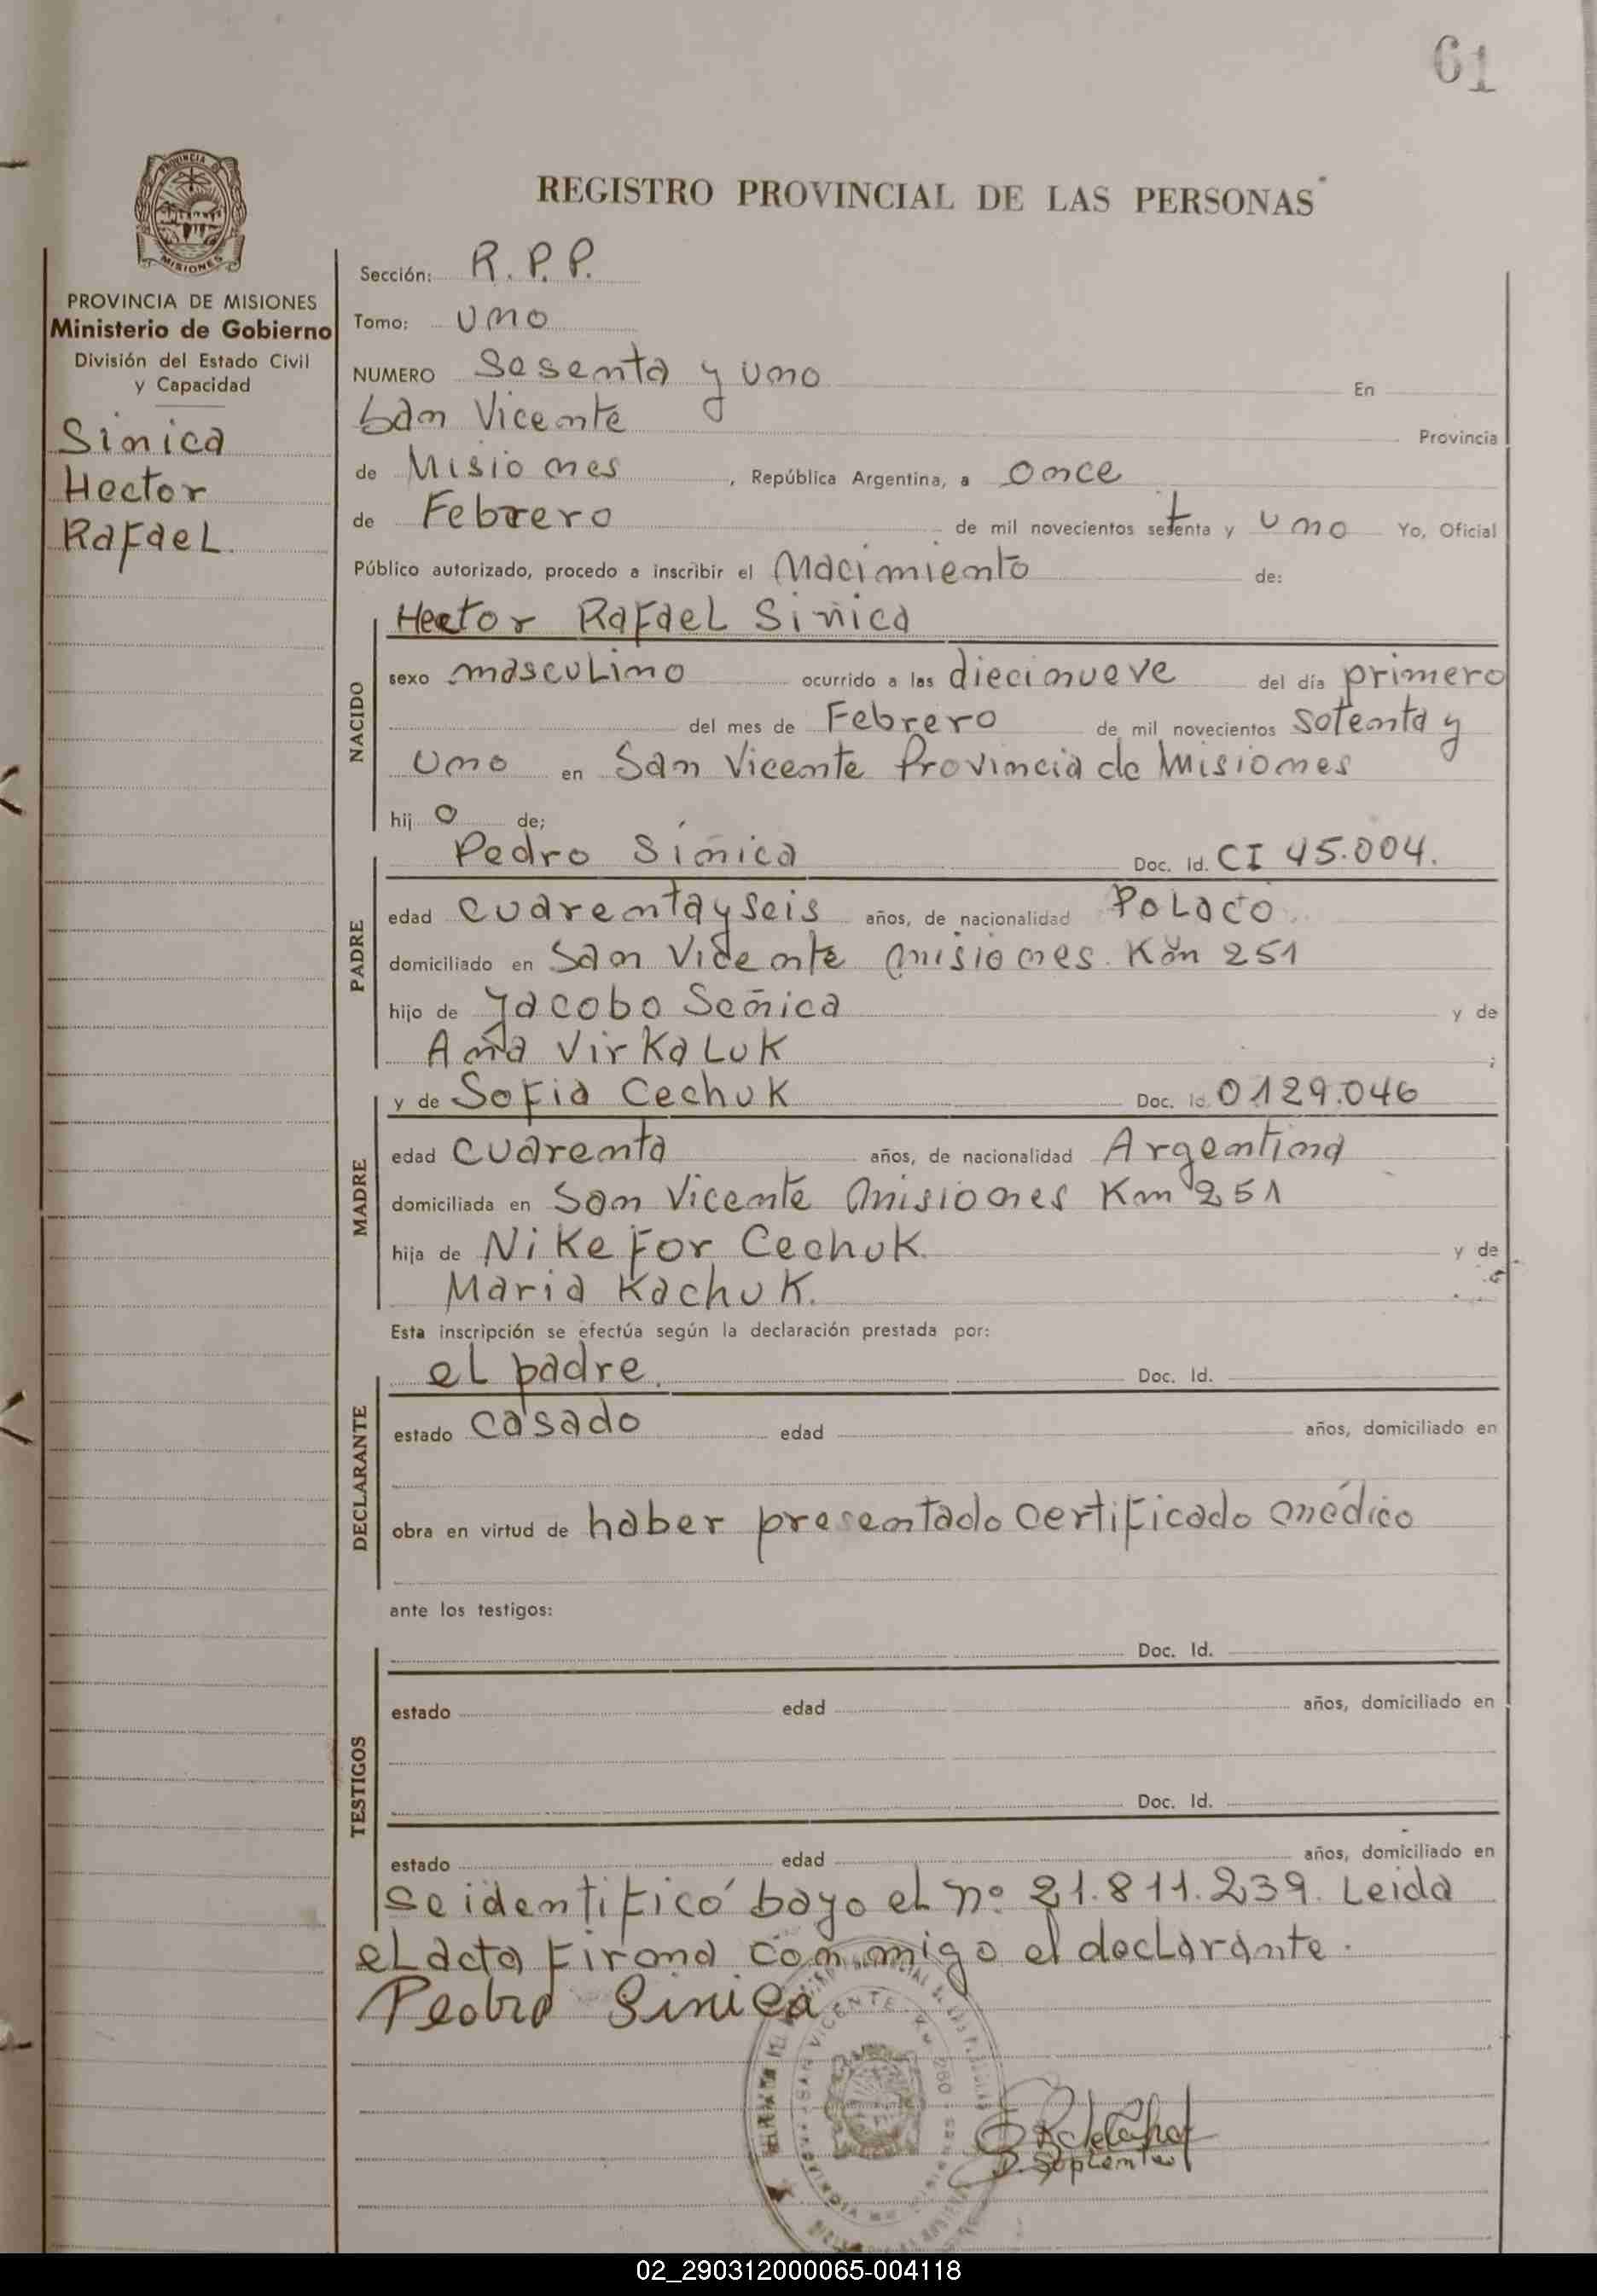 61
REGISTRO PROVINCIAL DE LAS PERSONAS
PROVINCIA DE MISIONES
Ministerio de Gobierno
División del Estado Civil
y Capacidad
Sinica
Hector
Rafael.
Sección: R.P.P.
Tomo: Uno
NUMERO Sesenta y uno En
San Vicente Provincia
de Misiones, República Argentina, a once
de Febrero de mil novecientos setenta y uno Yo, Oficial
Público autorizado, procedo a inscribir el Nacimiento de:
NACIDO
Hector Rafael Sinica
sexo masculino ocurrido a las diecinueve del día primero
del mes de Febrero de mil novecientos setenta y
uno en San Vicente Provincia de Misiones
hij o de;
PADRE
Pedro Sinica Doc. Id. CI 45.004.
edad cuarenta y seis años, de nacionalidad Polaco
domiciliado en San Vicente Misiones. Km 251
hijo de Jacobo Señica y de
Ana Virkaluk ;
MADRE
y de Sofia Cechuk Doc. Id. 0129.046
edad cuarenta años, de nacionalidad Argentina
domiciliada en San Vicente Misiones Km 251
hija de Nikefor Cechuk. y de
Maria Kachuk.
Esta inscripción se efectúa según la declaración prestada por:
DECLARANTE
el padre. Doc. Id.
estado casado edad años, domiciliado en
obra en virtud de haber presentado certificado médico
ante los testigos:
TESTIGOS
Doc. Id.
estado edad años, domiciliado en
Doc. Id.
estado edad años, domiciliado en
se identificó bajo el nº 21.811.239. Leida
el acta firma conmigo el declarante.
Pedro Sinica
SAN VICENTE
02_290312000065-004118